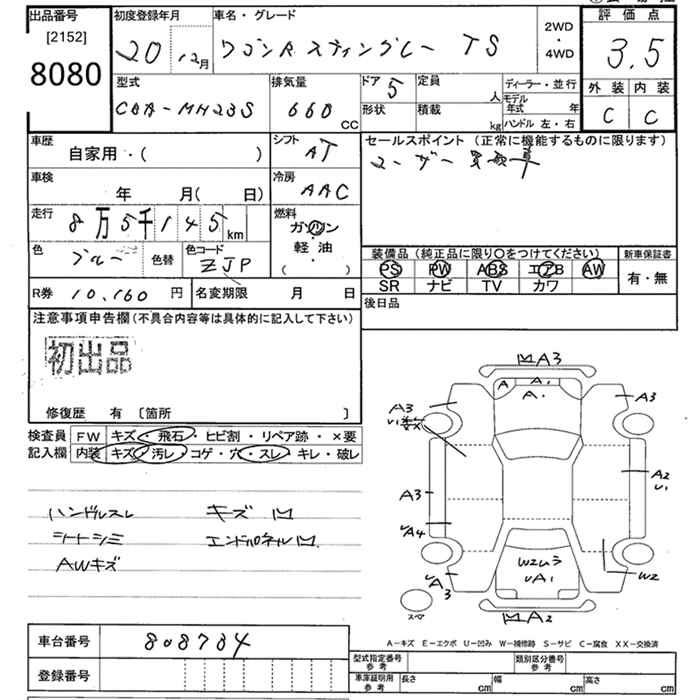 出品番号 初度登録年月 車名・グレード 2WD・4WD 評価点
[2152]
8080 20 12月 ワゴンR スティングレー TS 3.5
型式 排気量 ドア 5 定員 人 ディーラー・並行 外装 内装
CBA-MH23S 660 CC 形状 積載 kg モデル年式 年 C C
ハンドル 左・右
車歴 自家用・( ) シフト AT セールスポイント (正常に機能するものに限ります)
ユーザー買取車
車検 年 月(日) 冷房 AAC
走行 8万5千145km 燃料 ガソリン・軽油 ( )
色 ブルー 色替 色コード ZJP 装備品 (純正品に限り○をつけてください) 新車保証書
PS PW ABS エアB AW 有・無
SR ナビ TV カワ
R券 10,160 円 名変期限 月 日 後日品
注意事項申告欄 (不具合内容等は具体的に記入して下さい)
初出品
修復歴 有 〔箇所 〕
検査員 FW キズ・飛石・ヒビ割・リペア跡・×要
記入欄 内装 キズ・汚レ・コゲ・穴・スレ・キレ・破レ
ハンドルスレ キズ凹
シートシミ エンドパネル凹
AWキズ
凹A3
A A1
A・
A3 A3
A3 A2
U1
A4
W2ムラ
UA1 W2
A3
スペア 凹A2
A-キズ E-エクボ U-凹み W-補修跡 S-サビ C-腐食 XX-交換済
車台番号 808784
登録番号
型式指定番号 参考 類別区分番号 参考
車庫証明用 参考 長さ cm 幅 cm 高さ cm